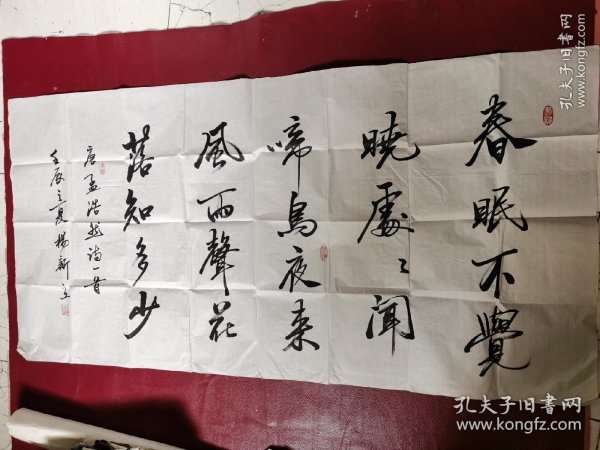 春眠不覺
曉處〻聞
啼鳥夜来
風雨聲花
落知多少
唐孟浩然诗一首
壬辰之夏楊新立
孔夫子旧书网
www.kongfz.com
孔夫子旧书网
www.kongfz.com